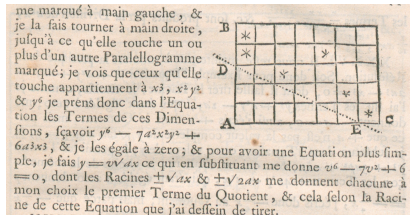 me marqué à main gauche, &
je la fais tourner à main droite,
jusqu'à ce qu'elle touche un ou
plus d'un autre Paralellogramme
marqué; je vois que ceux qu'elle
touche appartiennent à x3, x²y²
& y⁶ je prens donc dans l'Equa-
tion les Termes de ces Dimen-
sions, sçavoir y⁶ — 7a²x²y² +
6a3x3, & je les égale à zero; & pour avoir une Equation plus sim-
ple, je fais y = v√ax ce qui en substituant me donne v⁶ — 7v² + 6
= 0, dont les Racines ±√ax & ±√2ax me donnent chacune à
mon choix le premier Terme du Quotient, & cela selon la Raci-
ne de cette Equation que j'ai dessein de tirer.
B
D
A
E
C